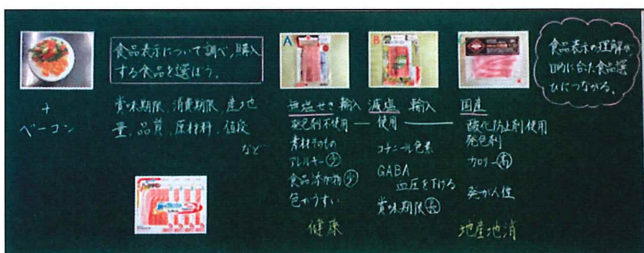 +
ベーコン
食品表示について調べ、購入
する食品を選ぼう。
賞味期限、消費期限、産地
量、品質、原材料、値段
など
A
無塩せき 輸入
発色剤不使用
素材そのもの
アレルギー 少
食品添加物 少
色がうすい
健康
B
減塩 輸入
使用
コチニール色素
GABA
血圧を下げる
賞味期限 長
国産
酸化防止剤使用
発色剤
カロリー 高
発がん性
地産地消
食品表示の理解が
目的に合った食品選
びにつながる。